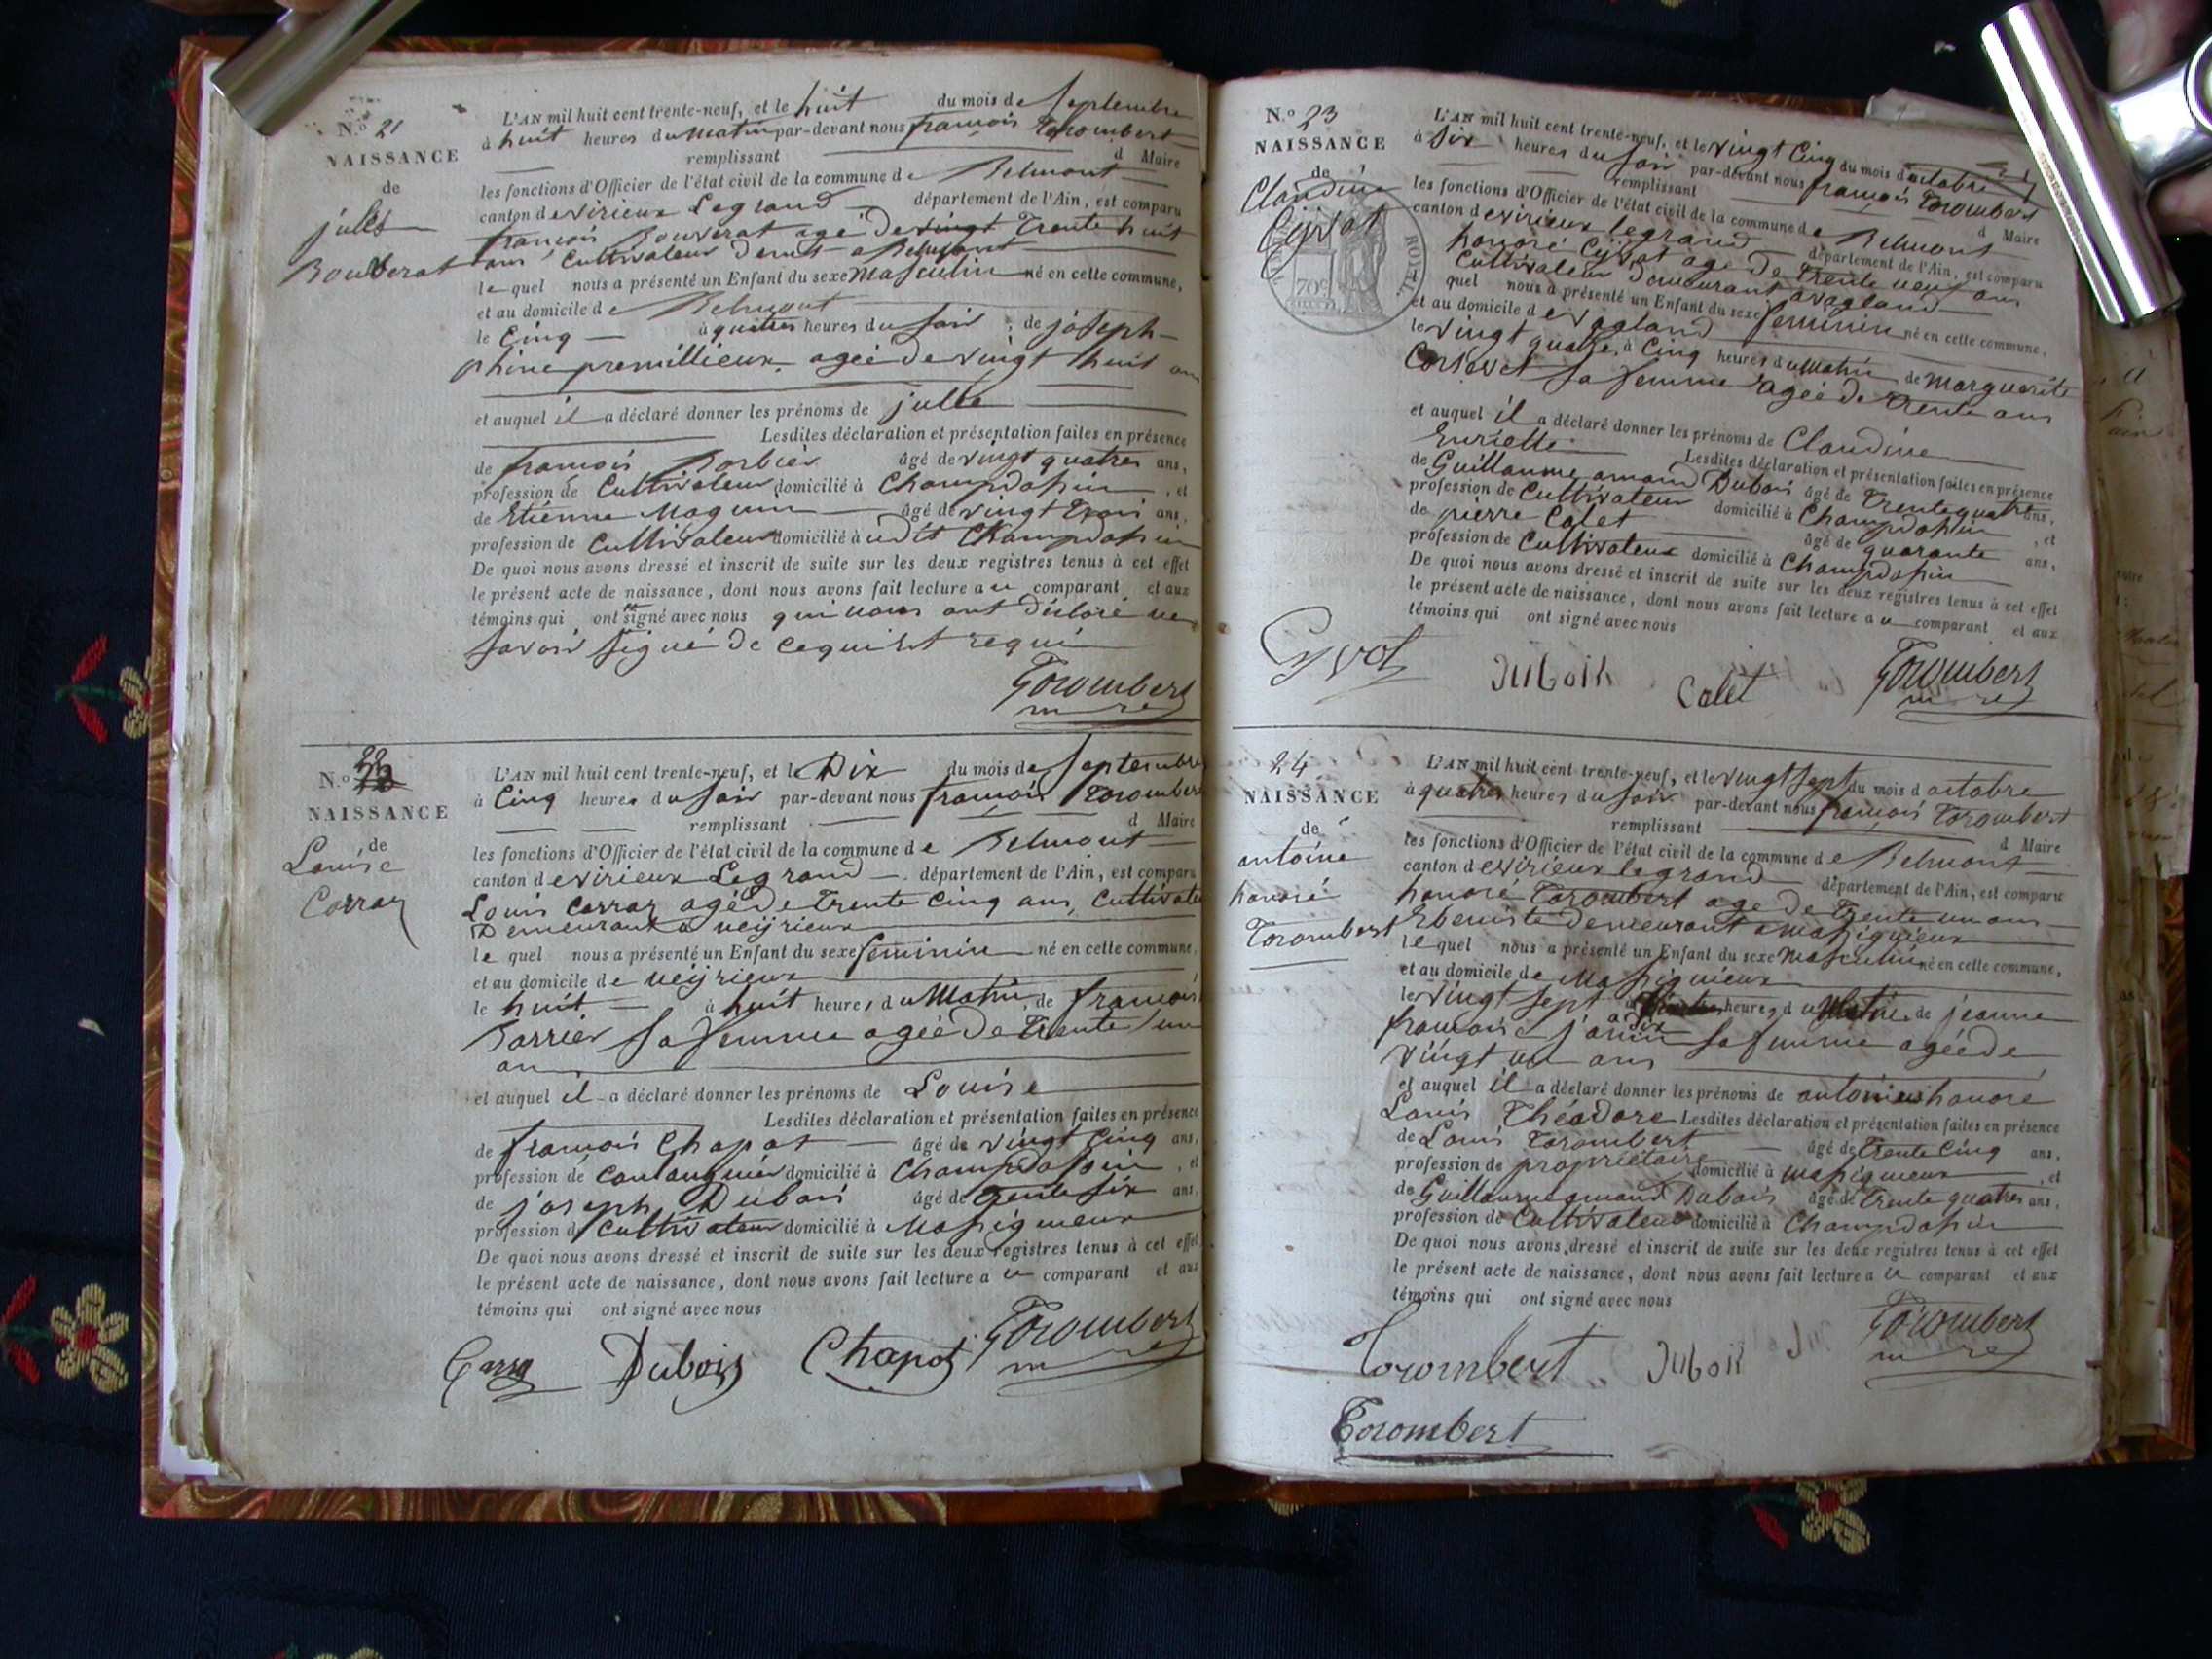 N.o 21
NAISSANCE
de
jules
Bouverat
L'AN mil huit cent trente-neuf, et le huit du mois de Septembre
à huit heures du Matin par-devant nous françois Torombert
remplissant d Maire
les fonctions d'Officier de l'état civil de la commune de Belmont
canton de virieux Legrand département de l'Ain, est comparu
françois Bouverat agé de vingt Trente huit
ans Cultivateur demt a Belmont
le quel nous a présenté un Enfant du sexe Masculin né en cette commune,
et au domicile de Belmont
le Cinq à quatres heures du Soir de joseph-
phine premillieux agée de vingt huit ans
et auquel il a déclaré donner les prénoms de jules
Lesdites déclaration et présentation faites en présence
de françois Barbier âgé de vingt quatres ans,
profession de Cultivateur domicilié à Champdossin, et
de Etienne Magnin âgé de vingt Trois ans,
profession de Cultivateur domicilié à udit Champdossin
De quoi nous avons dressé et inscrit de suite sur les deux registres tenus à cet effet
le présent acte de naissance, dont nous avons fait lecture au comparant et aux
témoins qui ont signé avec nous qui nous ont déclaré ne
Savoir Signé de ce qui est requi
Torombert
N.o 22
NAISSANCE
de
Louise
Carraz
L'AN mil huit cent trente-neuf, et le Dix du mois de Septembre
à Cinq heures du Soir par-devant nous françois Torombert
remplissant d Maire
les fonctions d'Officier de l'état civil de la commune de Belmont
canton de virieux Legrand département de l'Ain, est comparu
Louis Carraz agé de Trente Cinq ans, Cultivate
Demeurant a veijrieux
le quel nous a présenté un Enfant du sexe feminin né en cette commune,
et au domicile de veijrieux
le huit à huit heures du Matin, de françoise
Barrier Sa femme agée de Trente un
ans
et auquel il a déclaré donner les prénoms de Louise
Lesdites déclaration et présentation faites en présence
de françois Chapot âgé de vingt Cinq ans,
profession de domicilié à Champdossin, et
de joseph Dubois âgé de Trente Six ans,
profession de Cultivateur domicilié à Massignieux
De quoi nous avons dressé et inscrit de suite sur les deux registres tenus à cet effet
le présent acte de naissance, dont nous avons fait lecture au comparant et aux
témoins qui ont signé avec nous
Dubois Chapot Torombert
N.o 23
NAISSANCE
de
Claudine
Cyvot
ROYAL
70c
L'AN mil huit cent trente-neuf, et le vingt Cinq du mois d octobre
à Six heures du Soir par-devant nous françois Torombert
remplissant d Maire
les fonctions d'Officier de l'état civil de la commune de Belmont
canton de virieux legrand département de l'Ain, est comparu
honoré Cyvot agé de Trente neuf ans
Cultivateur Demeurant a vogland
quel nous a présenté un Enfant du sexe feminin né en cette commune,
et au domicile de vogland
le vingt quatre, à Cinq heures du Matin de Marguerite
Sa femme agée de Trente ans
et auquel il a déclaré donner les prénoms de Claudine
Enriette Lesdites déclaration et présentation faites en présence
de Guillaume amand Dubois âgé de Trente quatres ans,
profession de Cultivateur domicilié à Champdossin, et
de pierre Calet âgé de quarante ans,
profession de Cultivateur domicilié à Champdossin
De quoi nous avons dressé et inscrit de suite sur les deux registres tenus à cet effet
le présent acte de naissance, dont nous avons fait lecture au comparant et aux
témoins qui ont signé avec nous
Cyvot Dubois Calet Torombert
24
NAISSANCE
de
antoine
honoré
Torombert
L'AN mil huit cent trente-neuf, et le vingt Sept du mois d octobre
à quatres heures du Soir par-devant nous françois Torombert
remplissant d Maire
les fonctions d'Officier de l'état civil de la commune de Belmont
canton de virieux legrand département de l'Ain, est comparu
honoré Torombert agé de Trente un ans
Ebeniste demeurant a Massignieux
le quel nous a présenté un Enfant du sexe Masculin né en cette commune,
et au domicile de Massignieux
le vingt Sept à heures du Matin de jeanne
a dix
françoise janin Sa femme agée de
vingt un ans
et auquel il a déclaré donner les prénoms de antoine honoré
Louis Théodore Lesdites déclaration et présentation faites en présence
de Louis Torombert âgé de Trente Cinq ans,
profession de propriétaire domicilié à Massignieux, et
de Guillaume amand Dubois âgé de Trente quatres ans,
profession de Cultivateur domicilié à Champdossin
De quoi nous avons dressé et inscrit de suite sur les deux registres tenus à cet effet
le présent acte de naissance, dont nous avons fait lecture au comparant et aux
témoins qui ont signé avec nous
Torombert Dubois Torombert
Torombert